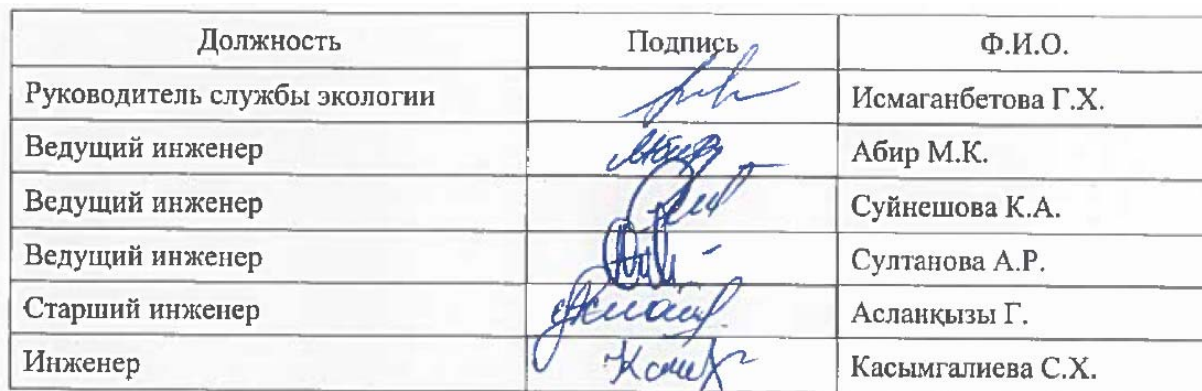 Должность Подпись Ф.И.О.
Руководитель службы экологии Исмаганбетова Г.Х.
Ведущий инженер Абир М.К.
Ведущий инженер Суйнешова К.А.
Ведущий инженер Султанова А.Р.
Старший инженер Асланқызы Г.
Инженер Касымгалиева С.Х.